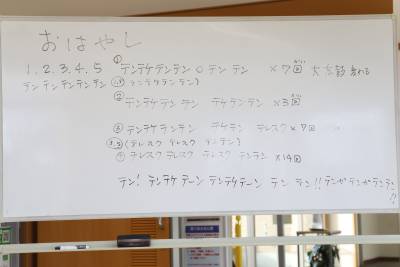 おはやし
1.2.3.4.5 ① テンテケテンテン 〇 テン テン ×7回 大太鼓 加わる
テンテンテンテンテン (テンテケテンテン)
② テンテケテンテン テン テケテンテン ×3回
③ テンテケテンテン テケテン テレスク ×7回
(テレスク テレスク テンテン)
④ テレスク テレスク テレスク テンテン ×14回
テン! テンテケ テーン テンテケテーン テン テン!! テンガ テンガ テンテン!!